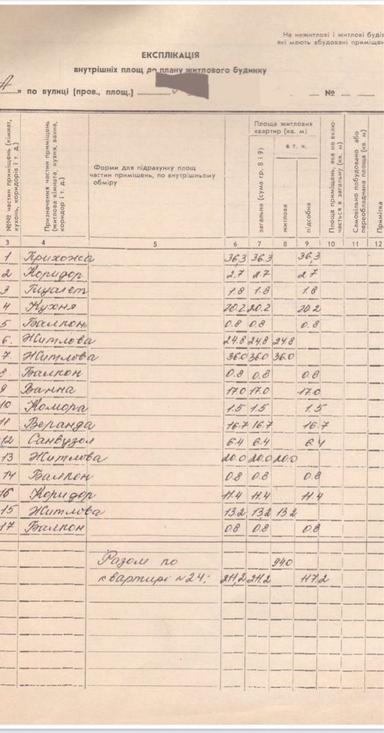 На нежитлові і житлові будів
які мають вбудовані приміщен
ЕКСПЛІКАЦІЯ
внутрішніх площ до плану житлового будинку
А" по вулиці (пров., площ.)
— № —
№№ частин приміщень (кімнат, кухонь, коридорів і т. д.)
Призначення частин приміщень (житлова кімната, кухня, ванна, коридор і т. д.)
Форми для підрахунку площ частин приміщень, по внутрішньому обміру
Площа житлових квартир (кв. м)
в т. ч.
загальна (сума гр. 8 і 9)
житлова
підсобна
Площа приміщень, яка не включається в загальну (кв. м)
Самовільно побудована або переобладнана площа (кв. м)
Примітка
3 4 5 6 7 8 9 10 11 12
1 Прихожа 36,3 36,3 36,3
2 Коридор 2.7 2.7 2.7
3 Туалет 1.8 1.8 1.8
4 Кухня 20.2 20.2 20.2
5 Балкон 0.8 0.8 0.8
6. Житлова 24.8 24.8 24.8
7. Житлова 36.0 36.0 36.0
8 Балкон 0.8 0.8 0.8
9 Ванна 17.0 17.0 17.0
10 Комора 1.5 1.5 1.5
11 Веранда 16.7 16.7 16.7
12 Санвузол 6.4 6.4 6.4
13 Житлова 20.0 20.0 20.0
14 Балкон 0.8 0.8 0.8
16 Коридор 11.4 11.4 11.4
15 Житлова 13.2 13.2 13.2
17 Балкон 0.8 0.8 0.8
Разом по 94.0
квартирі №24: 211,2 211,2 117,2